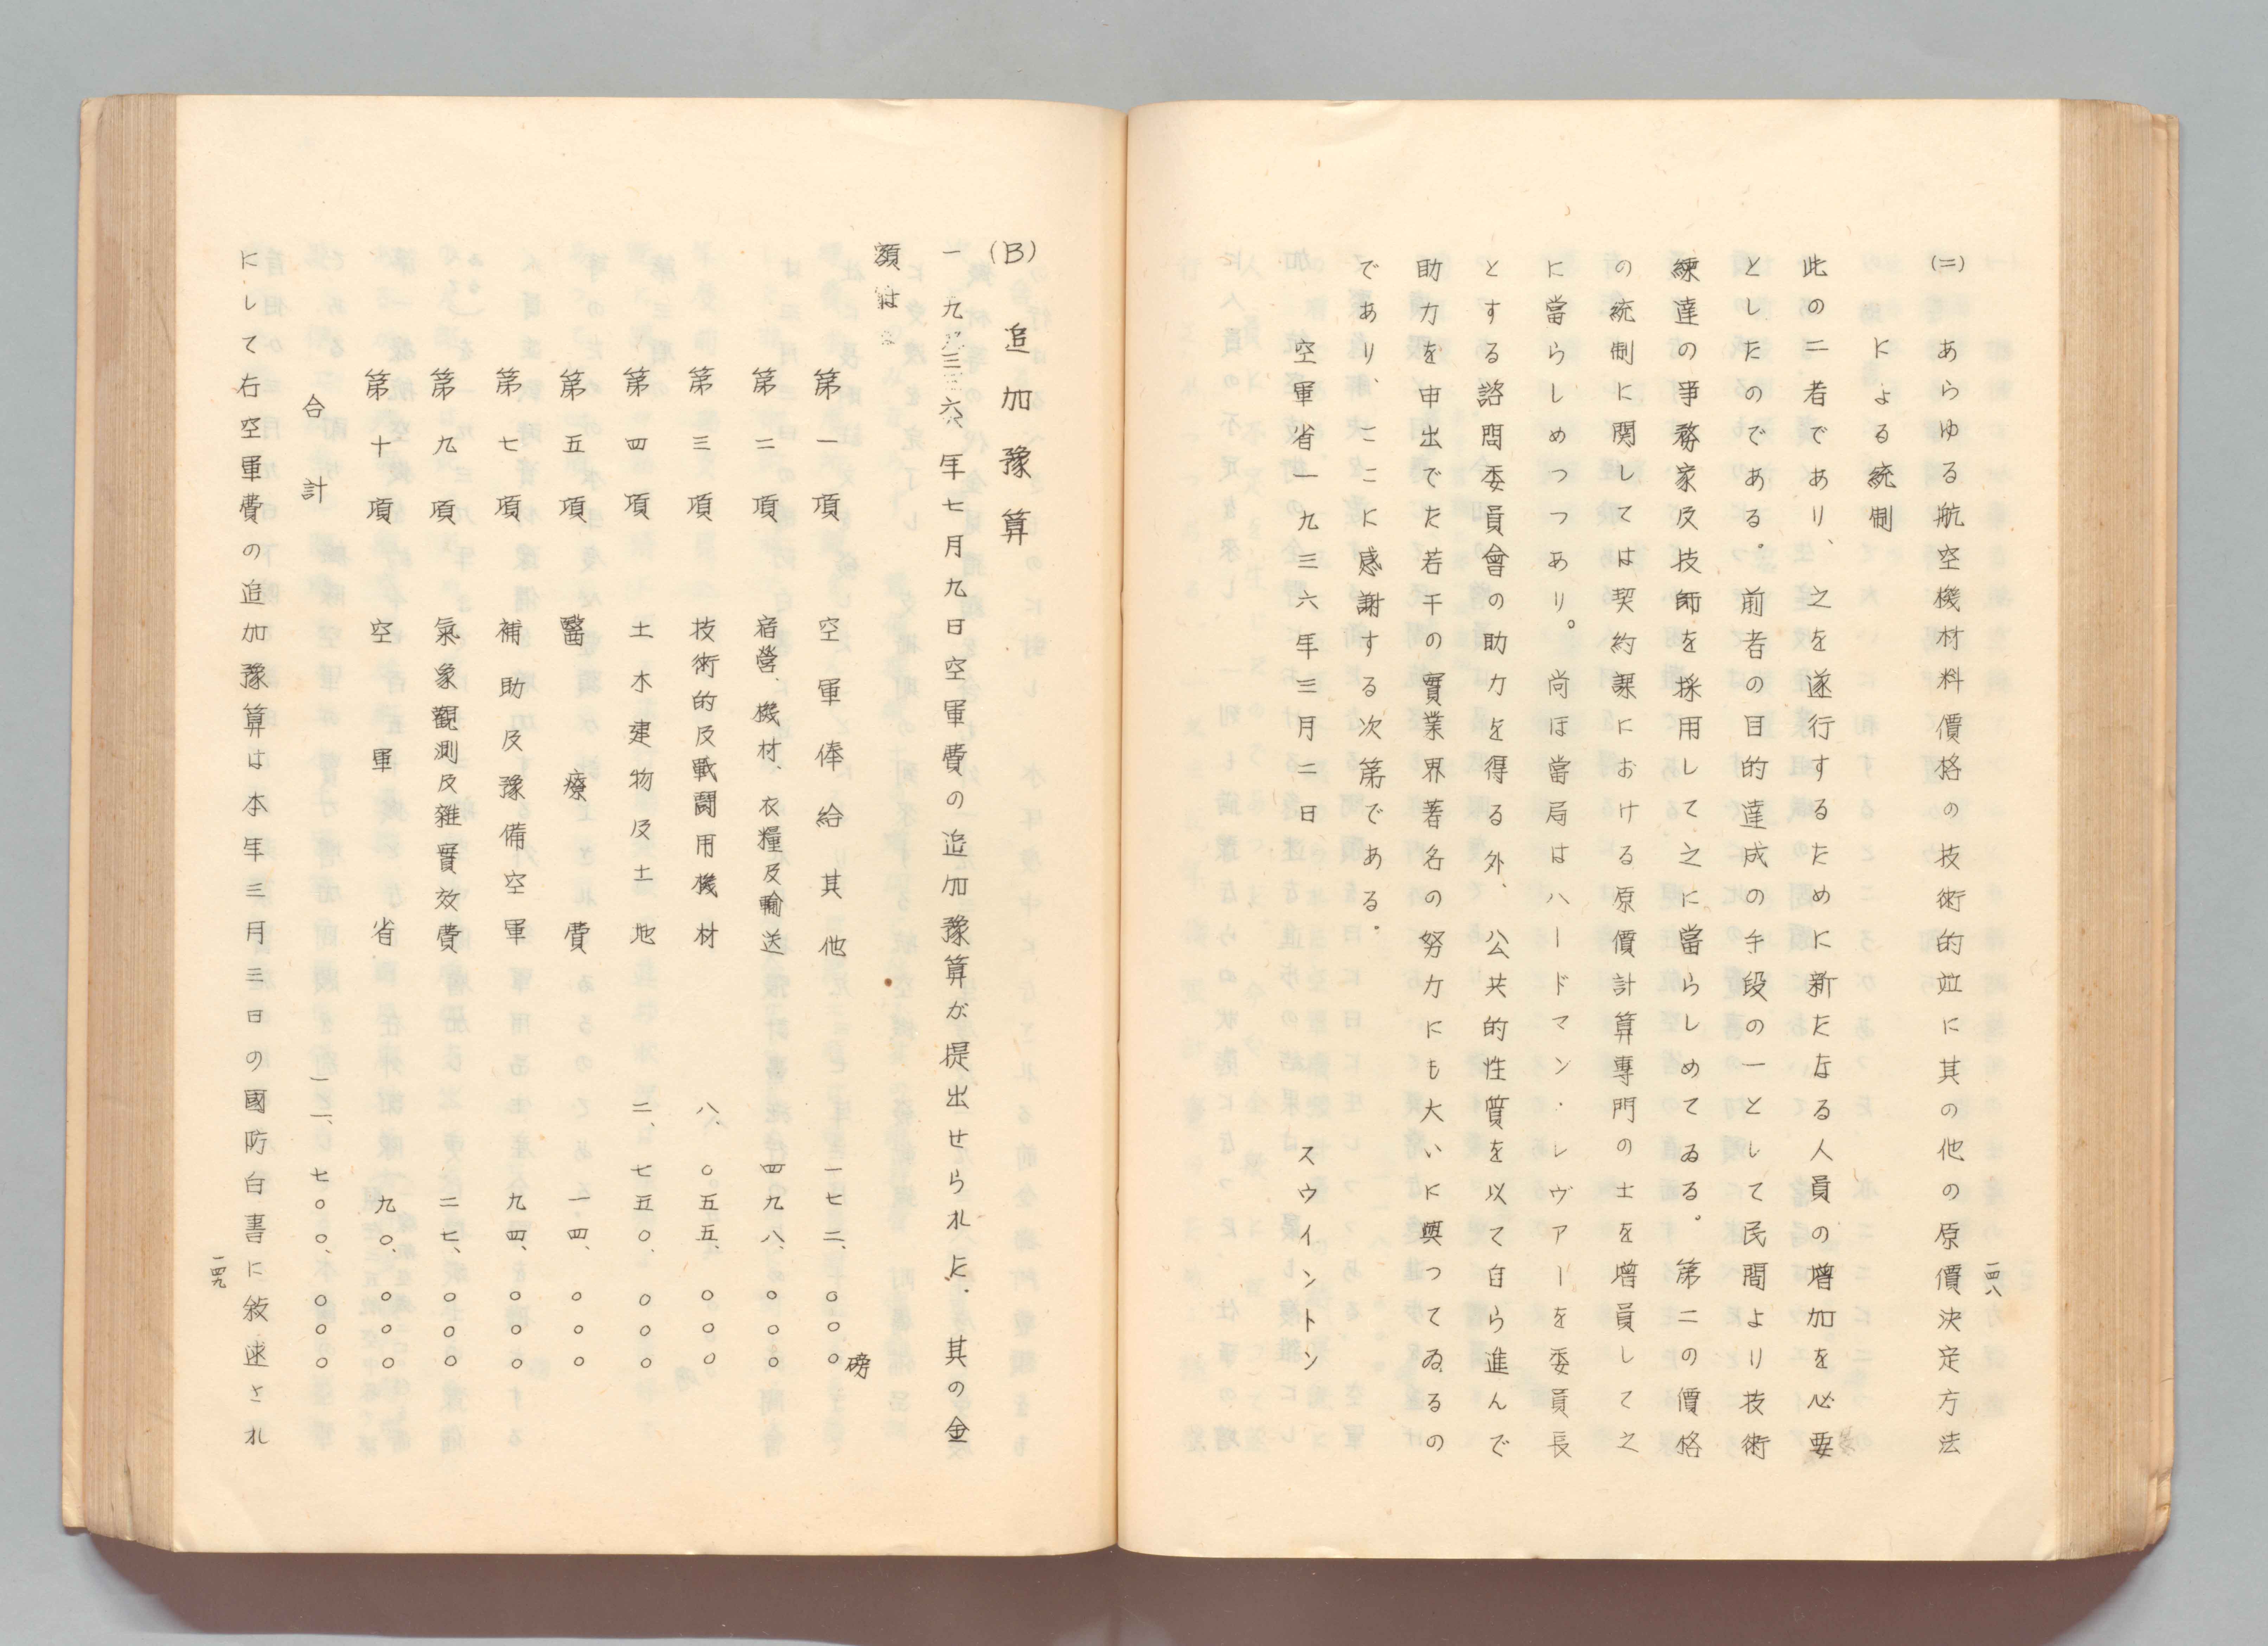 一四八
(二) あらゆる航空機材料價格の技術的竝に其の他の原價決定方法
による統制
此の二者であり、之を遂行するために新たなる人員の增加を必要
としたのである。前者の目的達成の手段の一として民間より技術
練達の事務家及技師を採用して之に當らしめてゐる。第二の價格
の統制に関しては契約課における原價計算專門の士を增員して之
に當らしめつつあり。尚ほ當局はハードマン・レヴアーを委員長
とする諮問委員會の助力を得る外、公共的性質を以て自ら進んで
助力を申出でた若干の實業界著名の努力にも大いに與つてゐるの
であり、ここに感謝する次第である.
空軍省一九三六年三月二日 スウイントン
(B) 追加豫算
一九三六年七月九日空軍費の追加豫算が提出せられた. 其の金
額は
磅
第一項 空軍俸給其他 一七二、〇〇〇
第二項 宿營、機材、衣糧及輸送 四九八、〇〇〇
第三項 技術的及戰鬪用機材 八、〇五五、〇〇〇
第四項 土木建物及土地 二、七五〇、〇〇〇
第五項 醫療費 一四、〇〇〇
第七項 補助及豫備空軍 九四、〇〇〇
第九項 氣象觀測及雜實效費 二七、〇〇〇
第十項 空軍省 九〇、〇〇〇
合計 一一、七〇〇、〇〇〇
にして右空軍費の追加豫算は本年三月三日の國防白書に敍述され
一四九